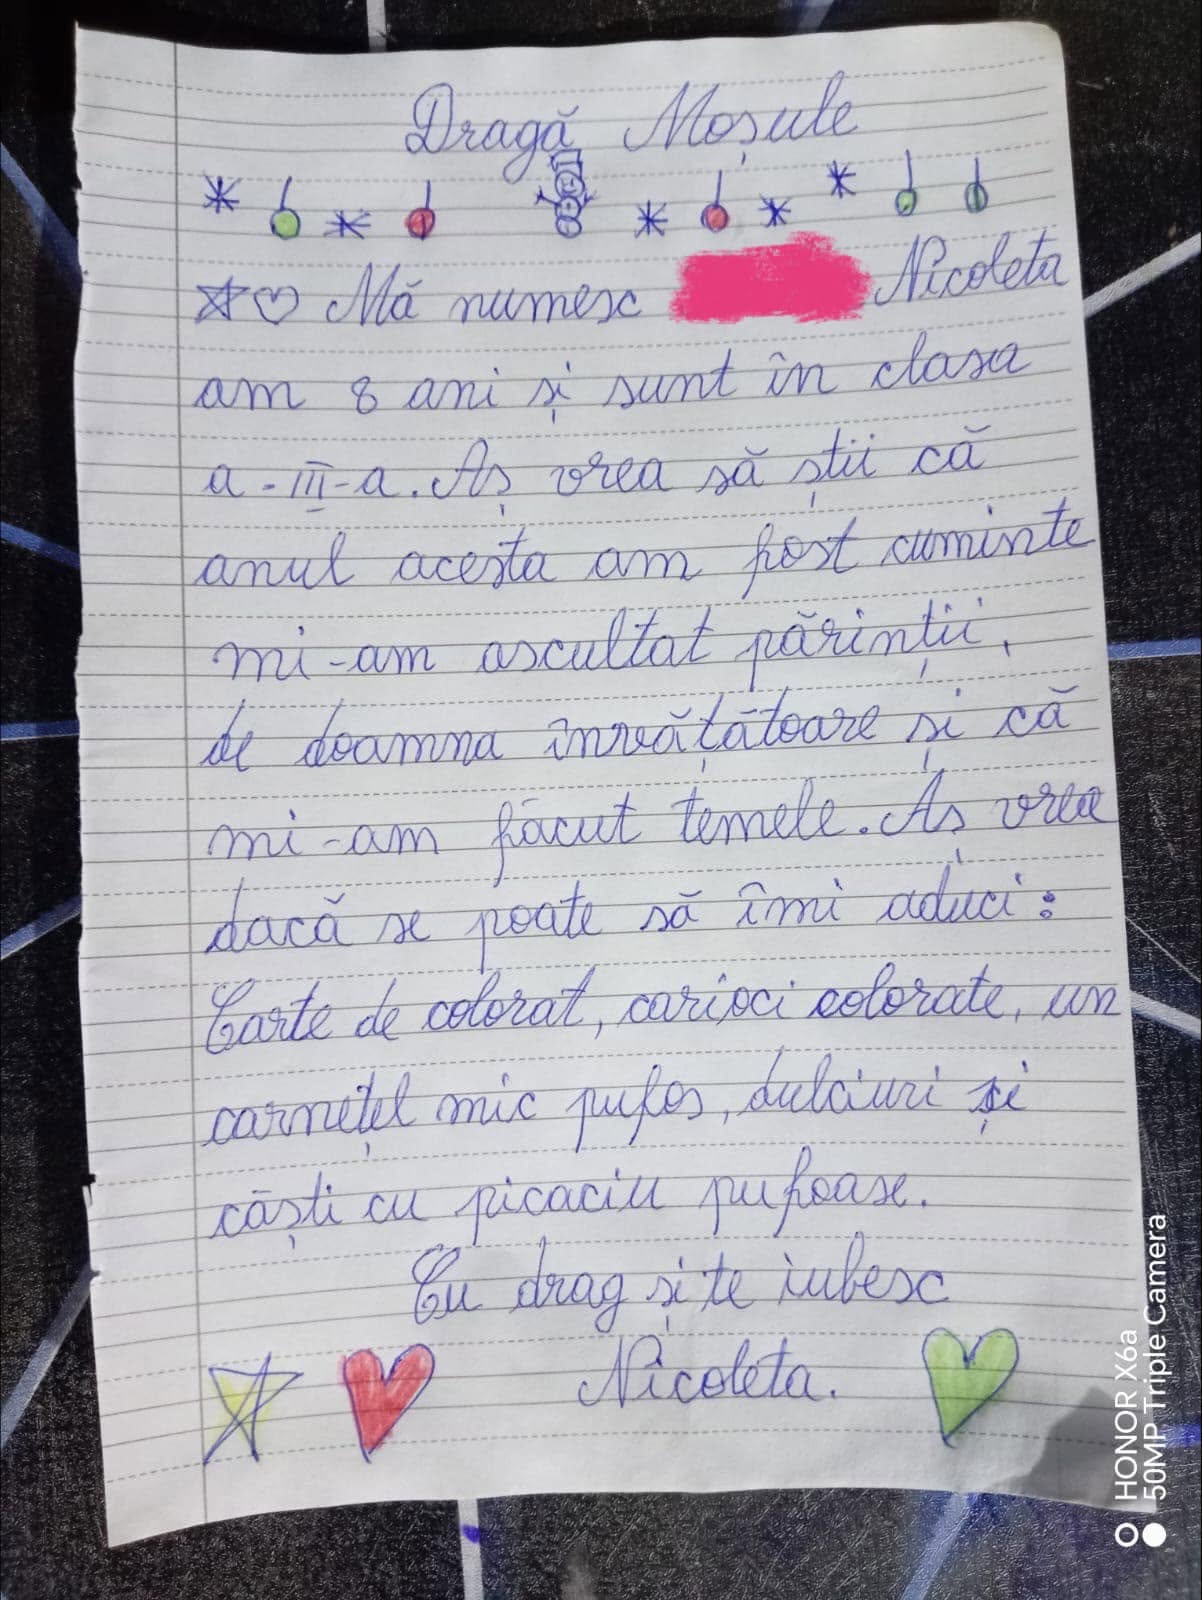 Dragă Moșule
Mă numesc Nicoleta
am 8 ani și sunt în clasa
a-III-a. Aș vrea să știi că
anul acesta am fost cuminte
mi-am ascultat părinții,
de doamna învățătoare și că
mi-am făcut temele. Aș vrea
dacă se poate să îmi aduci:
Carte de colorat, carioci colorate, un
carnețel mic pufos, dulciuri și
căști cu picaciu pufoase.
Cu drag și te iubesc
Nicoleta.
HONOR X6a
50MP Triple Camera